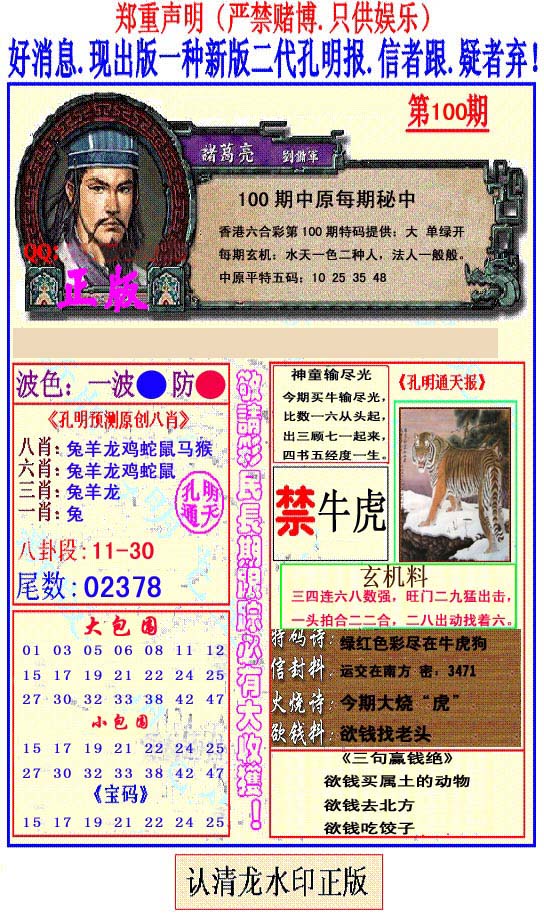 郑重声明（严禁赌博.只供娱乐）
好消息.现出版一种新版二代孔明报.信者跟.疑者弃!
第100期
諸葛亮 劉備軍
100 期中原每期秘中
香港六合彩第 100 期特码提供：大 单绿开
每期玄机：水天一色二种人，法人一般般。
中原平特五码：10 25 35 48
QQ:
正版
波色：一波 防
《孔明预测原创八肖》
八肖：兔羊龙鸡蛇鼠马猴
六肖：兔羊龙鸡蛇鼠
三肖：兔羊龙
一肖：兔
孔明
通天
八卦段:11-30
尾数:02378
大包围
01 03 05 06 08 11 12
15 17 19 21 22 24 25
27 30 32 33 38 42 47
小包围
15 17 19 21 22 24 25
27 30 32 33 38 42 47
《宝码》
15 17 19 21 22 24 25
敬請彩民長期跟踪必有大收獲！
神童输尽光
今期买牛输尽光，
比数一六从头起，
出三顾七一起来，
四书五经度一生。
《孔明通天报》
禁牛虎
玄机料
三四连六八数强，旺门二九猛出击，
一头拍合二二合，二八出动找着六。
特码诗：绿红色彩尽在牛虎狗
信封料：运交在南方 密：3471
火烧诗：今期大烧“虎”
欲钱料：欲钱找老头
《三句赢钱绝》
欲钱买属土的动物
欲钱去北方
欲钱吃饺子
认清龙水印正版